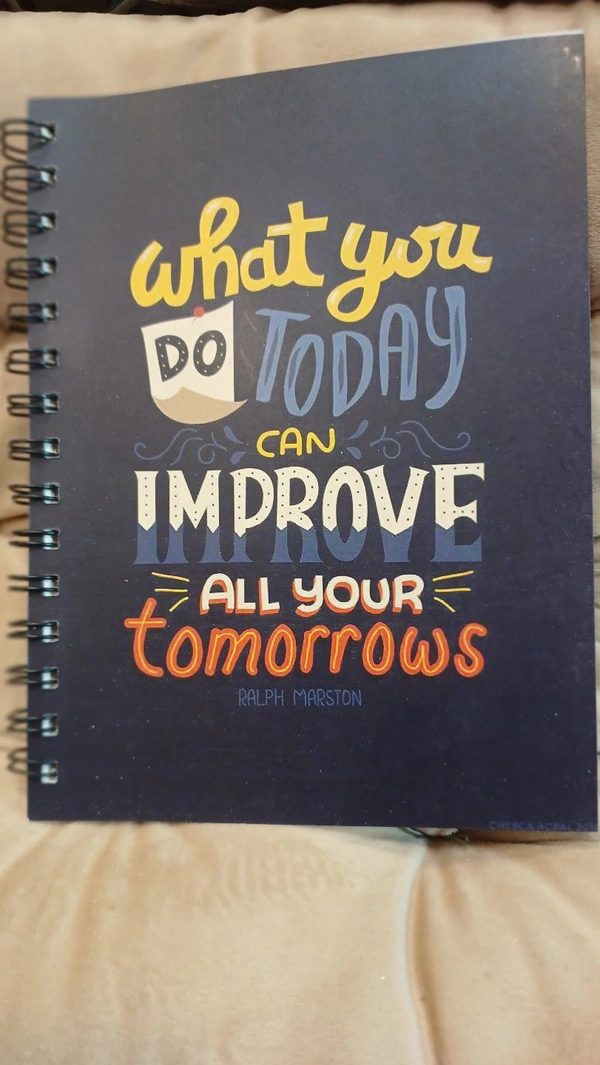 what you
DO TODAY
CAN
IMPROVE
ALL YOUR
tomorrows
RALPH MARSTON